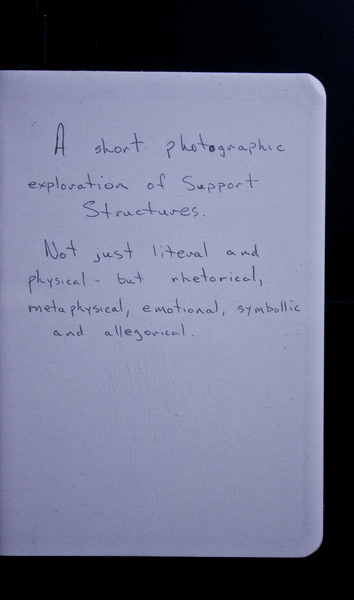 A short photographic
exploration of Support
Structures.
Not just literal and
physical - but rhetorical,
metaphysical, emotional, symbollic
and allegorical.